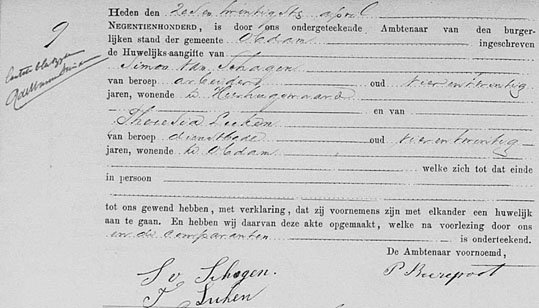 Heden den zes en twintigste april
9 NEGENTIENHONDERD, is door ons ondergeteekende Ambtenaar van den burger-
lijken stand der gemeente Obdam ingeschreven
de Huwelijks-aangifte van
Simon van Schagen
van beroep arbeider oud vier en twintig
jaren, wonende te Heerhugowaard
en van
Theresia Luken
van beroep dienstbode oud vier en twintig
jaren, wonende te Obdam
welke zich tot dat einde
in persoon
tot ons gewend hebben, met verklaring, dat zij voornemens zijn met elkander een huwelijk
aan te gaan. En hebben wij daarvan deze akte opgemaakt, welke na voorlezing door ons
en de comparanten is onderteekend.
De Ambtenaar voornoemd,
S v. Schagen.
T Luken